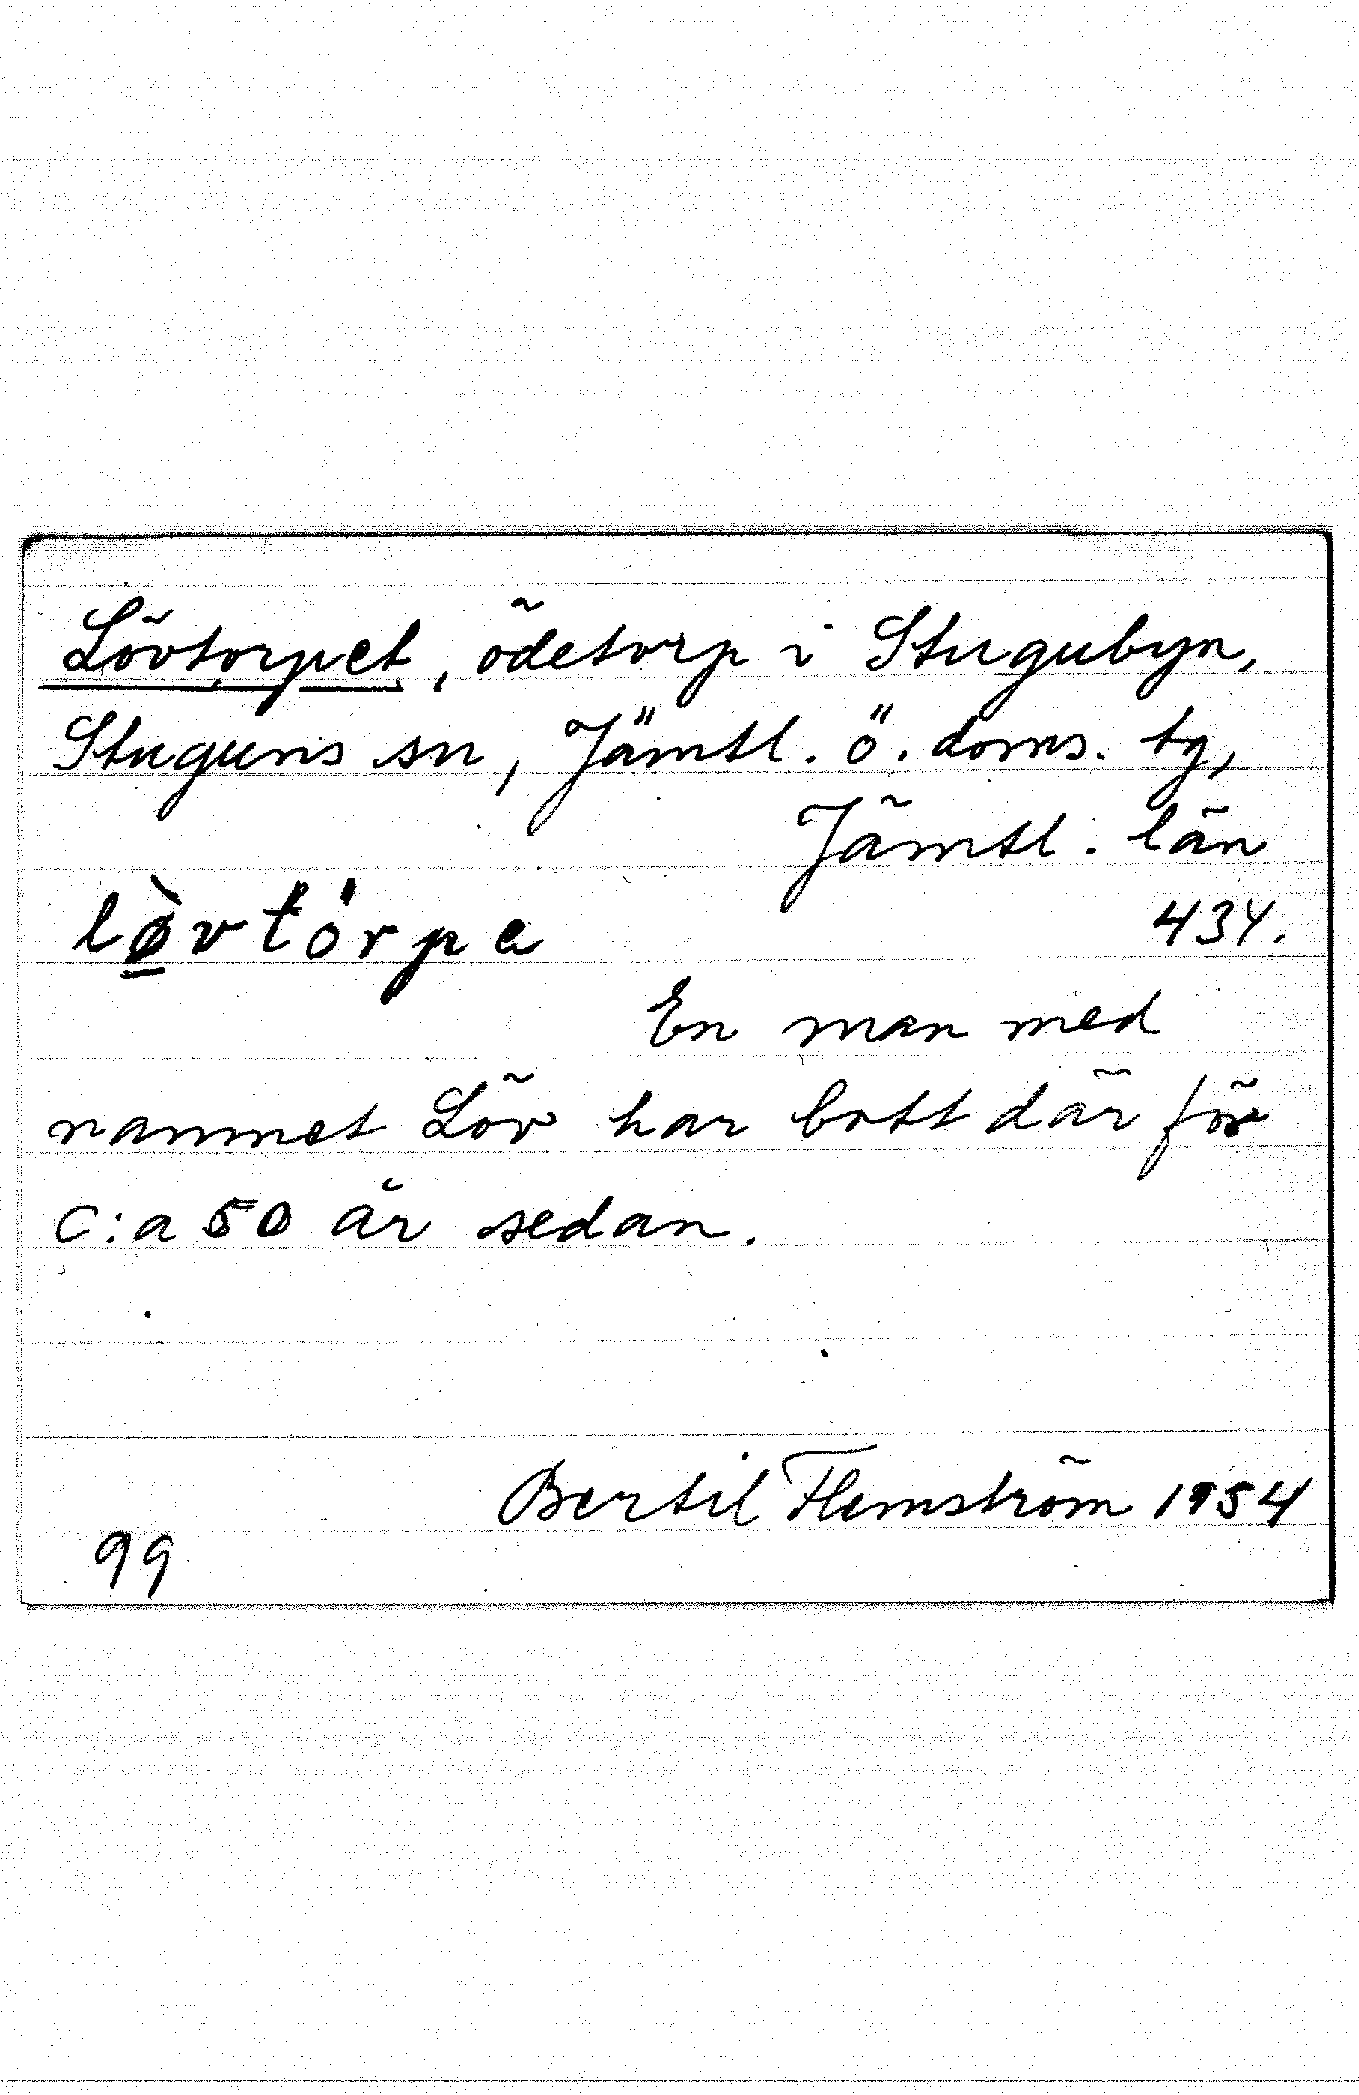 Lövtorpet, ödetorp i Stugubyn,
Stuguns sn, Jämtl. ö. doms. tg,
Jämtl. län
lø̀vtórpa
434.
En man med
namnet Löv har bott där för
c:a 50 år sedan.
Bertil Flemström 1954
99